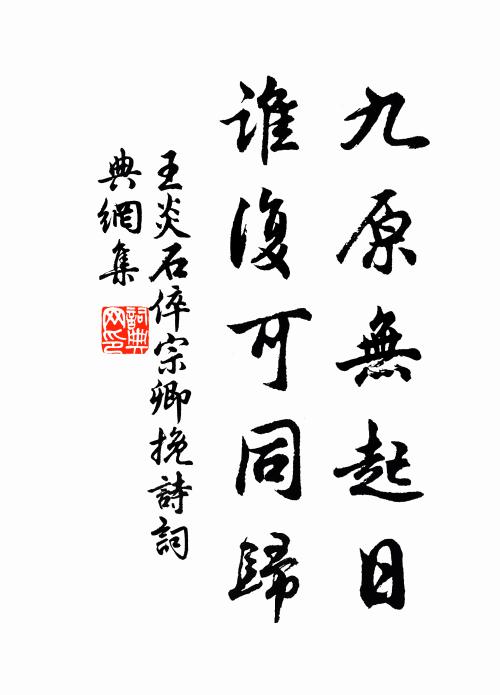 九原無起日
誰復可同歸
王炎石倅宗卿挽詩詞
典網集
詞典網印